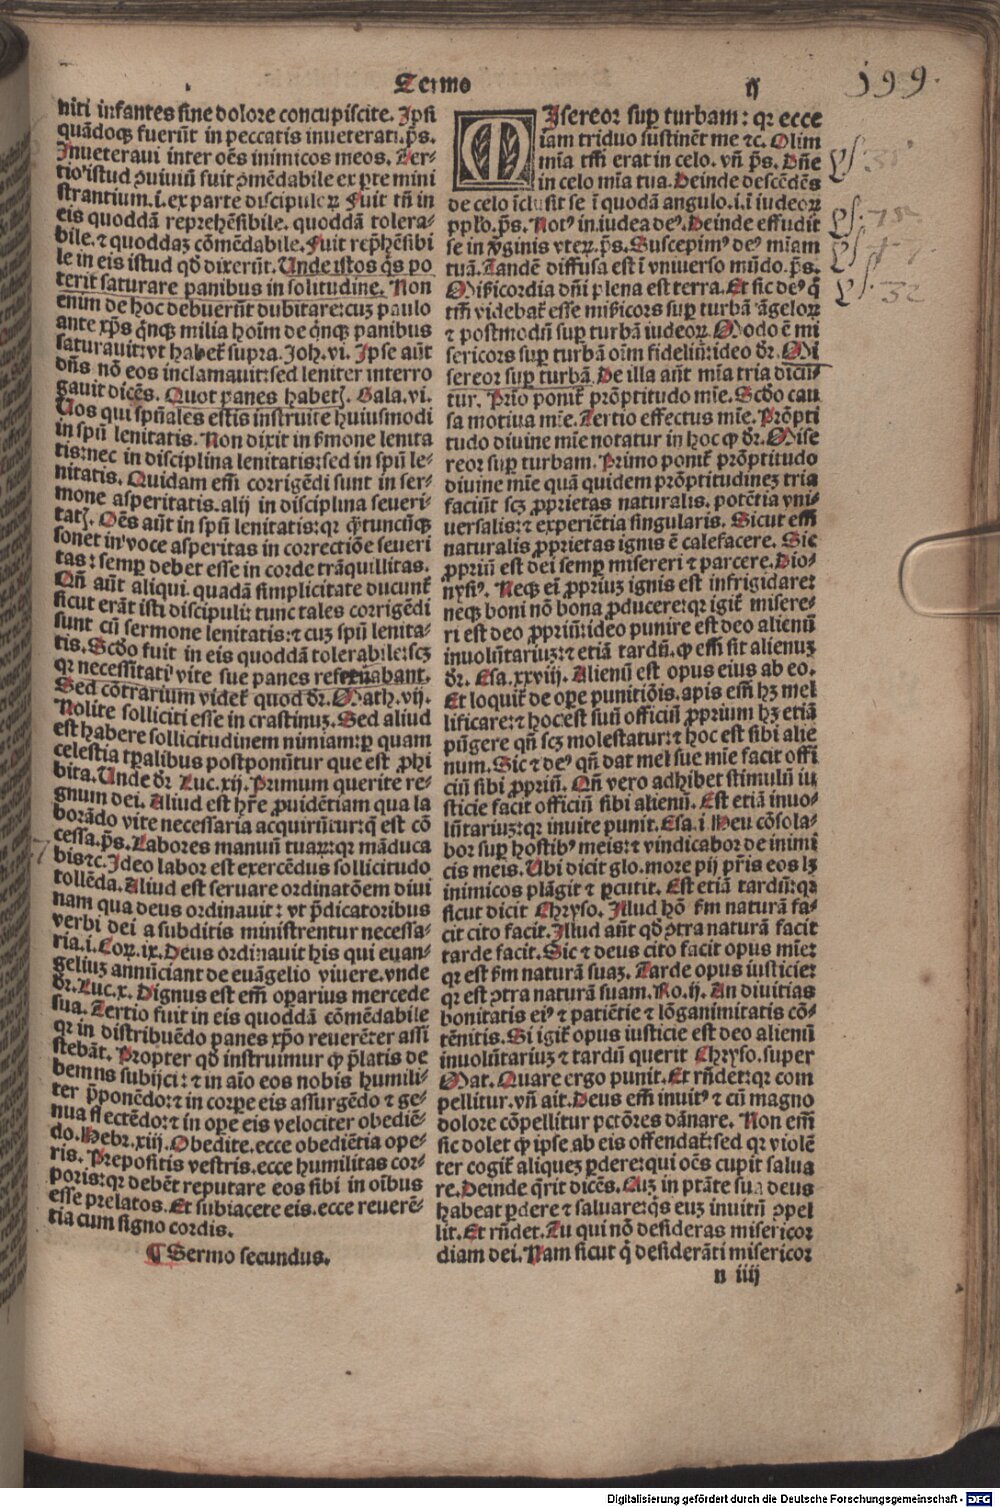 Sermo
ij
199.
niti infantes sine dolore concupiscite. Ipsi
quãdoqꝫ fuerũt in peccatis inueterati. p̃s.
Inueteraui inter oẽs inimicos meos. Ter-
strantium .i. ex parte discipuloꝝ Fuit tñ in
eis quoddã reprehẽsibile. quoddã tolera-
bile. ⁊ quoddaꝫ cõmẽdabile. Fuit rep̃hẽsibi
le in eis istud qđ dixerũt. Unde istos q̃s po
terit saturare panibus in solitudine. Non
enim de hoc debuerũt dubitare: cuꝫ paulo
ante xp̃s q̃nqꝫ milia hoĩm de q̃nqꝫ panibus
saturauit: vt habet̃ supra. Joh. vi. Ipse aũt
dñs nõ eos inclamauit: sed leniter interro
gauit dicẽs. Quot panes habetꝭ. Gala. vi.
Uos qui spũales estis instruite huiusmodi
in spũ lenitatis. Non dixit in ẜmone lenita
tis: nec in disciplina lenitatis: sed in spũ le-
nitatis. Quidam em̃ corrigẽdi sunt in ser-
mone asperitatis. alij in disciplina seueri-
tatꝭ. Oẽs aũt in spũ lenitatis: qꝛ q̃tuncũqꝫ
sonet in voce asperitas in correctiõe seueri
tas: semꝑ debet esse in corde trãquillitas.
Qñ aũt aliqui quadã simplicitate ducunt̃
sicut erãt isti discipuli: tunc tales corrigẽdi
sunt cũ sermone lenitatis: ⁊ cuꝫ spũ lenita-
tis. Scđo fuit in eis quoddã tolerabile: scꝫ
qꝛ necessitati vite sue panes reseruabant.
Sed cõtrarium videt̃ quod dꝛ̃. Math. vij.
Nolite solliciti esse in crastinuꝫ. Sed aliud
est habere sollicitudinem nimiam: ꝑ quam
celestia tp̃alibus postponũtur que est ꝓhi
bita. Unde dꝛ̃ Luc. xij. Primum querite re-
gnum dei. Aliud est hr̃e ꝓuidẽtiam qua la
borãdo vite necessaria acquirũtur: q̃ est cõ
cessa. p̃s. Labores manuũ tuaꝝ: qꝛ mãduca
bis ⁊c. Ideo labor est exercẽdus sollicitudo
tollẽda. Aliud est seruare ordinatõem diui
nam qua deus ordinauit: vt p̃dicatoribus
verbi dei a subditis ministrentur necessa-
ria. i. Coꝝ. ix. Deus ordinauit his qui euan-
geliuꝫ annũciant de euãgelio viuere. vnde
dꝛ̃. Luc. x. Dignus est em̃ oꝑarius mercede
sua. Tertio fuit in eis quoddã cõmẽdabile
qꝛ in distribuẽdo panes xp̃o reuerẽter assi
stebãt. Propter qđ instruimur ꝙ p̃latis de
bemus subijci: ⁊ in aĩo eos nobis humili-
ter p̃ponẽdo: ⁊ in corꝑe eis assurgẽdo ⁊ ge-
nua flectẽdo: ⁊ in oꝑe eis velociter obediẽ-
do. Hebꝛ. xiij. Obedite. ecce obediẽtia oꝑe-
ris. Prepositis vestris. ecce humilitas cor-
poris: qꝛ debẽt reputare eos sibi in oĩbus
esse prelatos. Et subiacete eis. ecce reuerẽ-
tia cum signo cordis.
¶ Sermo secundus.
MIsereor suꝑ turbam: qꝛ ecce
iam triduo sustinẽt me ⁊c. Olim
mĩa tm̃ erat in celo. vñ p̃s. Dñe
in celo mĩa tua. Deinde descẽdẽs
de celo ĩclusit se ĩ quodã angulo .i. ĩ iudeoꝝ
pp̃lo. p̃s. Notꝰ in iudea deꝰ. Deinde effudit
se in v̾ginis vteꝝ. p̃s. Suscepimꝰ deꝰ mĩam
tuã. Tandẽ diffusa est ĩ vniuerso mũdo. p̃s.
Miẜicordia dñi plena est terra. Et sic deꝰ q̃
tm̃ videbat̃ esse miẜicors suꝑ turbã ãgeloꝝ
⁊ postmodũ suꝑ turbã iudeoꝝ. Modo ẽ mi
sericors suꝑ turbã oĩm fideliũ: ideo dꝛ̃. Mi
sereor suꝑ turbã. De illa aũt mĩa tria dicũ-
tur. Prĩo ponit̃ prõptitudo mĩe. Scđo cau
sa motiua mĩe. Tertio effectus mĩe. Prõpti
tudo diuine mĩe notatur in hoc ꝙ dꝛ̃. Mise
reor suꝑ turbam. Primo ponit̃ prõptitudo
diuine mĩe quã quidem prõptitudineꝫ tria
faciũt scꝫ ꝓprietas naturalis. potẽtia vni-
uersalis: ⁊ experiẽtia singularis. Sicut em̃
naturalis ꝓprietas ignis ẽ calefacere. Sic
ꝓpriũ est dei semꝑ misereri ⁊ parcere. Dio-
nysiꝰ. Neqꝫ eĩ ꝓpriuꝫ ignis est infrigidare:
neqꝫ boni nõ bona ꝓducere: qꝛ igit̃ misere-
ri est deo ꝓpriũ: ideo punire est deo alienũ
inuolũtariuꝫ: ⁊ etiã tardũ. ꝙ em̃ sit alienuꝫ
dꝛ̃. Esa. xxviij. Alienũ est opus eius ab eo.
Et loquit̃ de oꝑe punitiõis. apis em̃ hꝫ mel
lificare: ⁊ hoc est suũ officiũ ꝓprium hꝫ etiã
pũgere qñ scꝫ molestatur: ⁊ hoc est sibi alie
num. Sic ⁊ deꝰ qñ dat mel sue mĩe facit offi
ciũ sibi ꝓpriũ. Qñ vero adhibet stimulũ iu
sticie facit officiũ sibi alienũ. Est etiã inuo-
lũtariuꝫ: qꝛ inuite punit. Esa. i. Heu cõsola-
bor suꝑ hostibꝰ meis: ⁊ vindicabor de inimi
cis meis. Ubi dicit glo. more pij pr̃is eos lꝫ
inimicos plãgit ⁊ ꝑcutit. Est etiã tardũ: qꝛ
sicut dicit Chryso. Illud hõ ẜm naturã fa-
cit cito facit. Illud aũt qđ ꝯtra naturã facit
tarde facit. Sic ⁊ deus cito facit opus mĩe:
qꝛ est ẜm naturã suaꝫ. Tarde opus iusticie:
qꝛ est ꝯtra naturã suam. Ro. ij. An diuitias
bonitatis eiꝰ ⁊ patiẽtie ⁊ lõganimitatis cõ-
tẽnitis. Si igit̃ opus iusticie est deo alienũ
inuolũtariuꝫ ⁊ tardũ querit Chryso. super
Mat. Quare ergo punit. Et rñdet: qꝛ com
pellitur. vñ ait. Deus em̃ inuitꝰ ⁊ cũ magno
dolore cõpellitur pctõres dãnare. Non em̃
sic dolet ꝙ ipse ab eis offendat̃: sed qꝛ violẽ
ter cogit̃ aliqueꝫ ꝑdere: qui oẽs cupit salua
re. Deinde q̃rit dicẽs. Cuꝫ in ptãte sua deus
habeat ꝑdere ⁊ saluare: q̃s euꝫ inuitũ ꝯpel
lit. Et rñdet. Tu qui nõ desideras misericor
diam dei. Nam sicut q̃ desiderãti misericor
n iiij
Digitalisierung gefördert durch die Deutsche Forschungsgemeinschaft - DFG